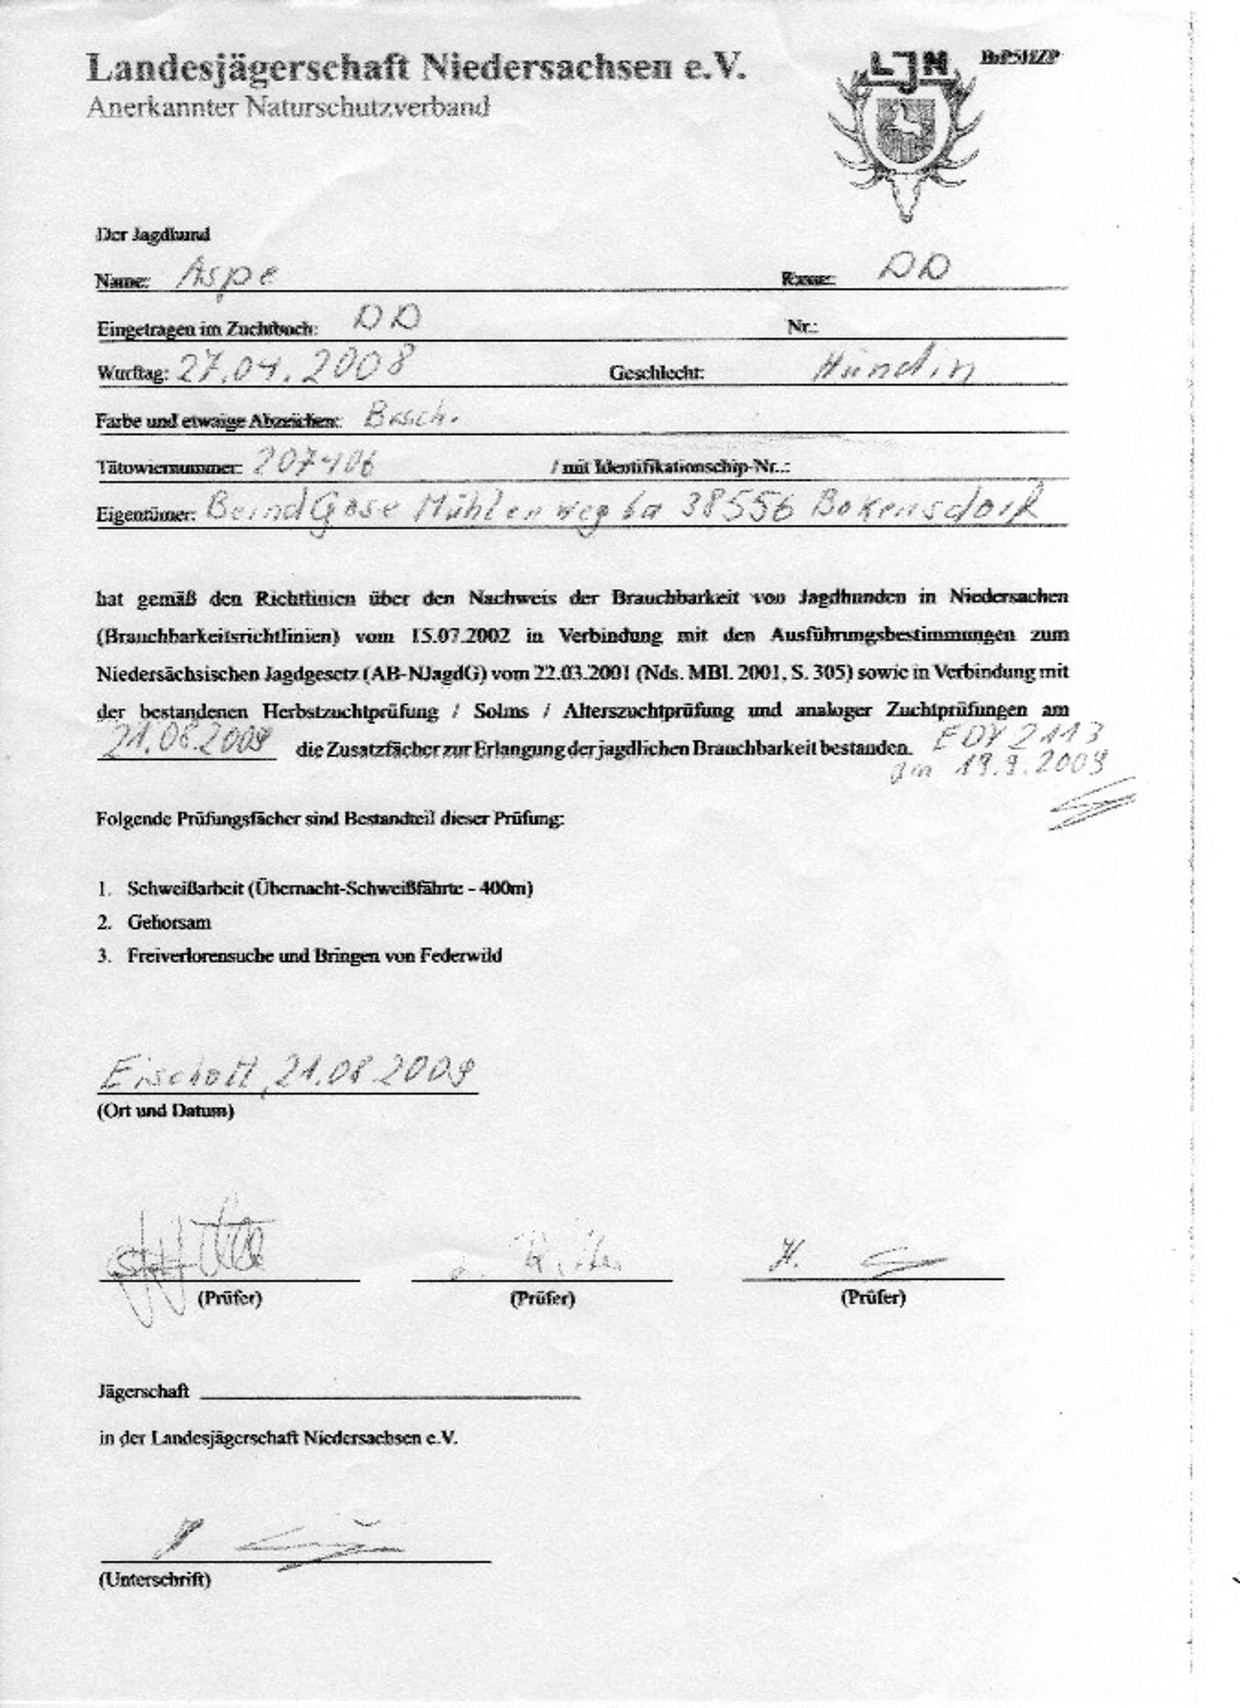 Landesjägerschaft Niedersachsen e.V.
Anerkannter Naturschutzverband
LJN
BrP5HZP
Der Jagdhund
Name: Aspe Rasse: DD
Eingetragen im Zuchtbuch: DD Nr.:
Wurftag: 27.04.2008 Geschlecht: Hündin
Farbe und etwaige Abzeichen: Brsch.
Tätowiernummer: 207406 / mit Identifikationschip-Nr..:
Eigentümer: Bernd Gose Mühlenweg 6a 38556 Bokensdorf
hat gemäß den Richtlinien über den Nachweis der Brauchbarkeit von Jagdhunden in Niedersachen
(Brauchbarkeitsrichtlinien) vom 15.07.2002 in Verbindung mit den Ausführungsbestimmungen zum
Niedersächsischen Jagdgesetz (AB-NJagdG) vom 22.03.2001 (Nds. MBl. 2001, S. 305) sowie in Verbindung mit
der bestandenen Herbstzuchtprüfung / Solms / Alterszuchtprüfung und analoger Zuchtprüfungen am
21.08.2009 die Zusatzfächer zur Erlangung der jagdlichen Brauchbarkeit bestanden. EDV 2113
am 19.9.2009
Folgende Prüfungsfächer sind Bestandteil dieser Prüfung:
1. Schweißarbeit (Übernacht-Schweißfährte - 400m)
2. Gehorsam
3. Freiverlorensuche und Bringen von Federwild
Eischott, 21.08.2009
(Ort und Datum)
H.
(Prüfer) (Prüfer) (Prüfer)
Jägerschaft
in der Landesjägerschaft Niedersachsen e.V.
(Unterschrift)